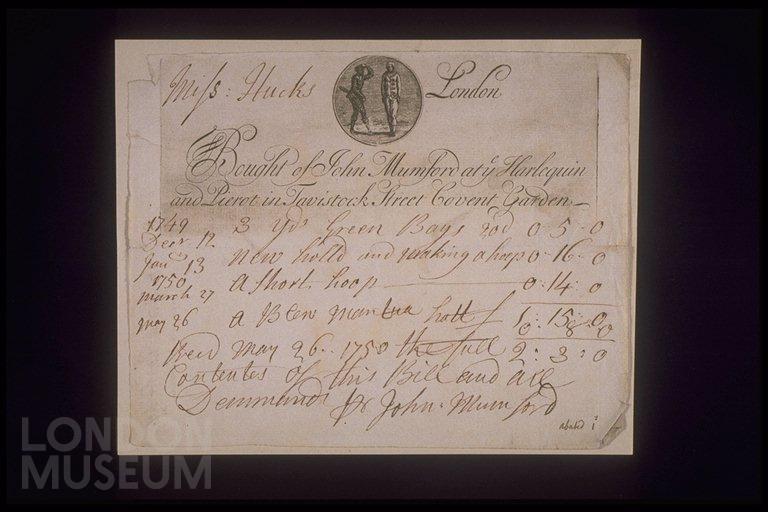 Miss: Hucks London
Bought of John Mumford at ye Harlequin
and Pierot in Tavistock Street Covent Garden
1749
Decr 12 3 Yds Green Bays 20d 0 : 5 : 0
Janry 13 New holld and making a hoop 0 : 16 : 0
1750
march 27 a Short hoop 0 : 14 : 0
1 : 15 : 0
may 26 a Blew Mantua 0 : 8 : 0
Recd May 26 : 1750 the full 2 : 3 : 0
Contentes of this Bill and all
Demmands Pr John Mumford
abated 1s
LONDON
MUSEUM